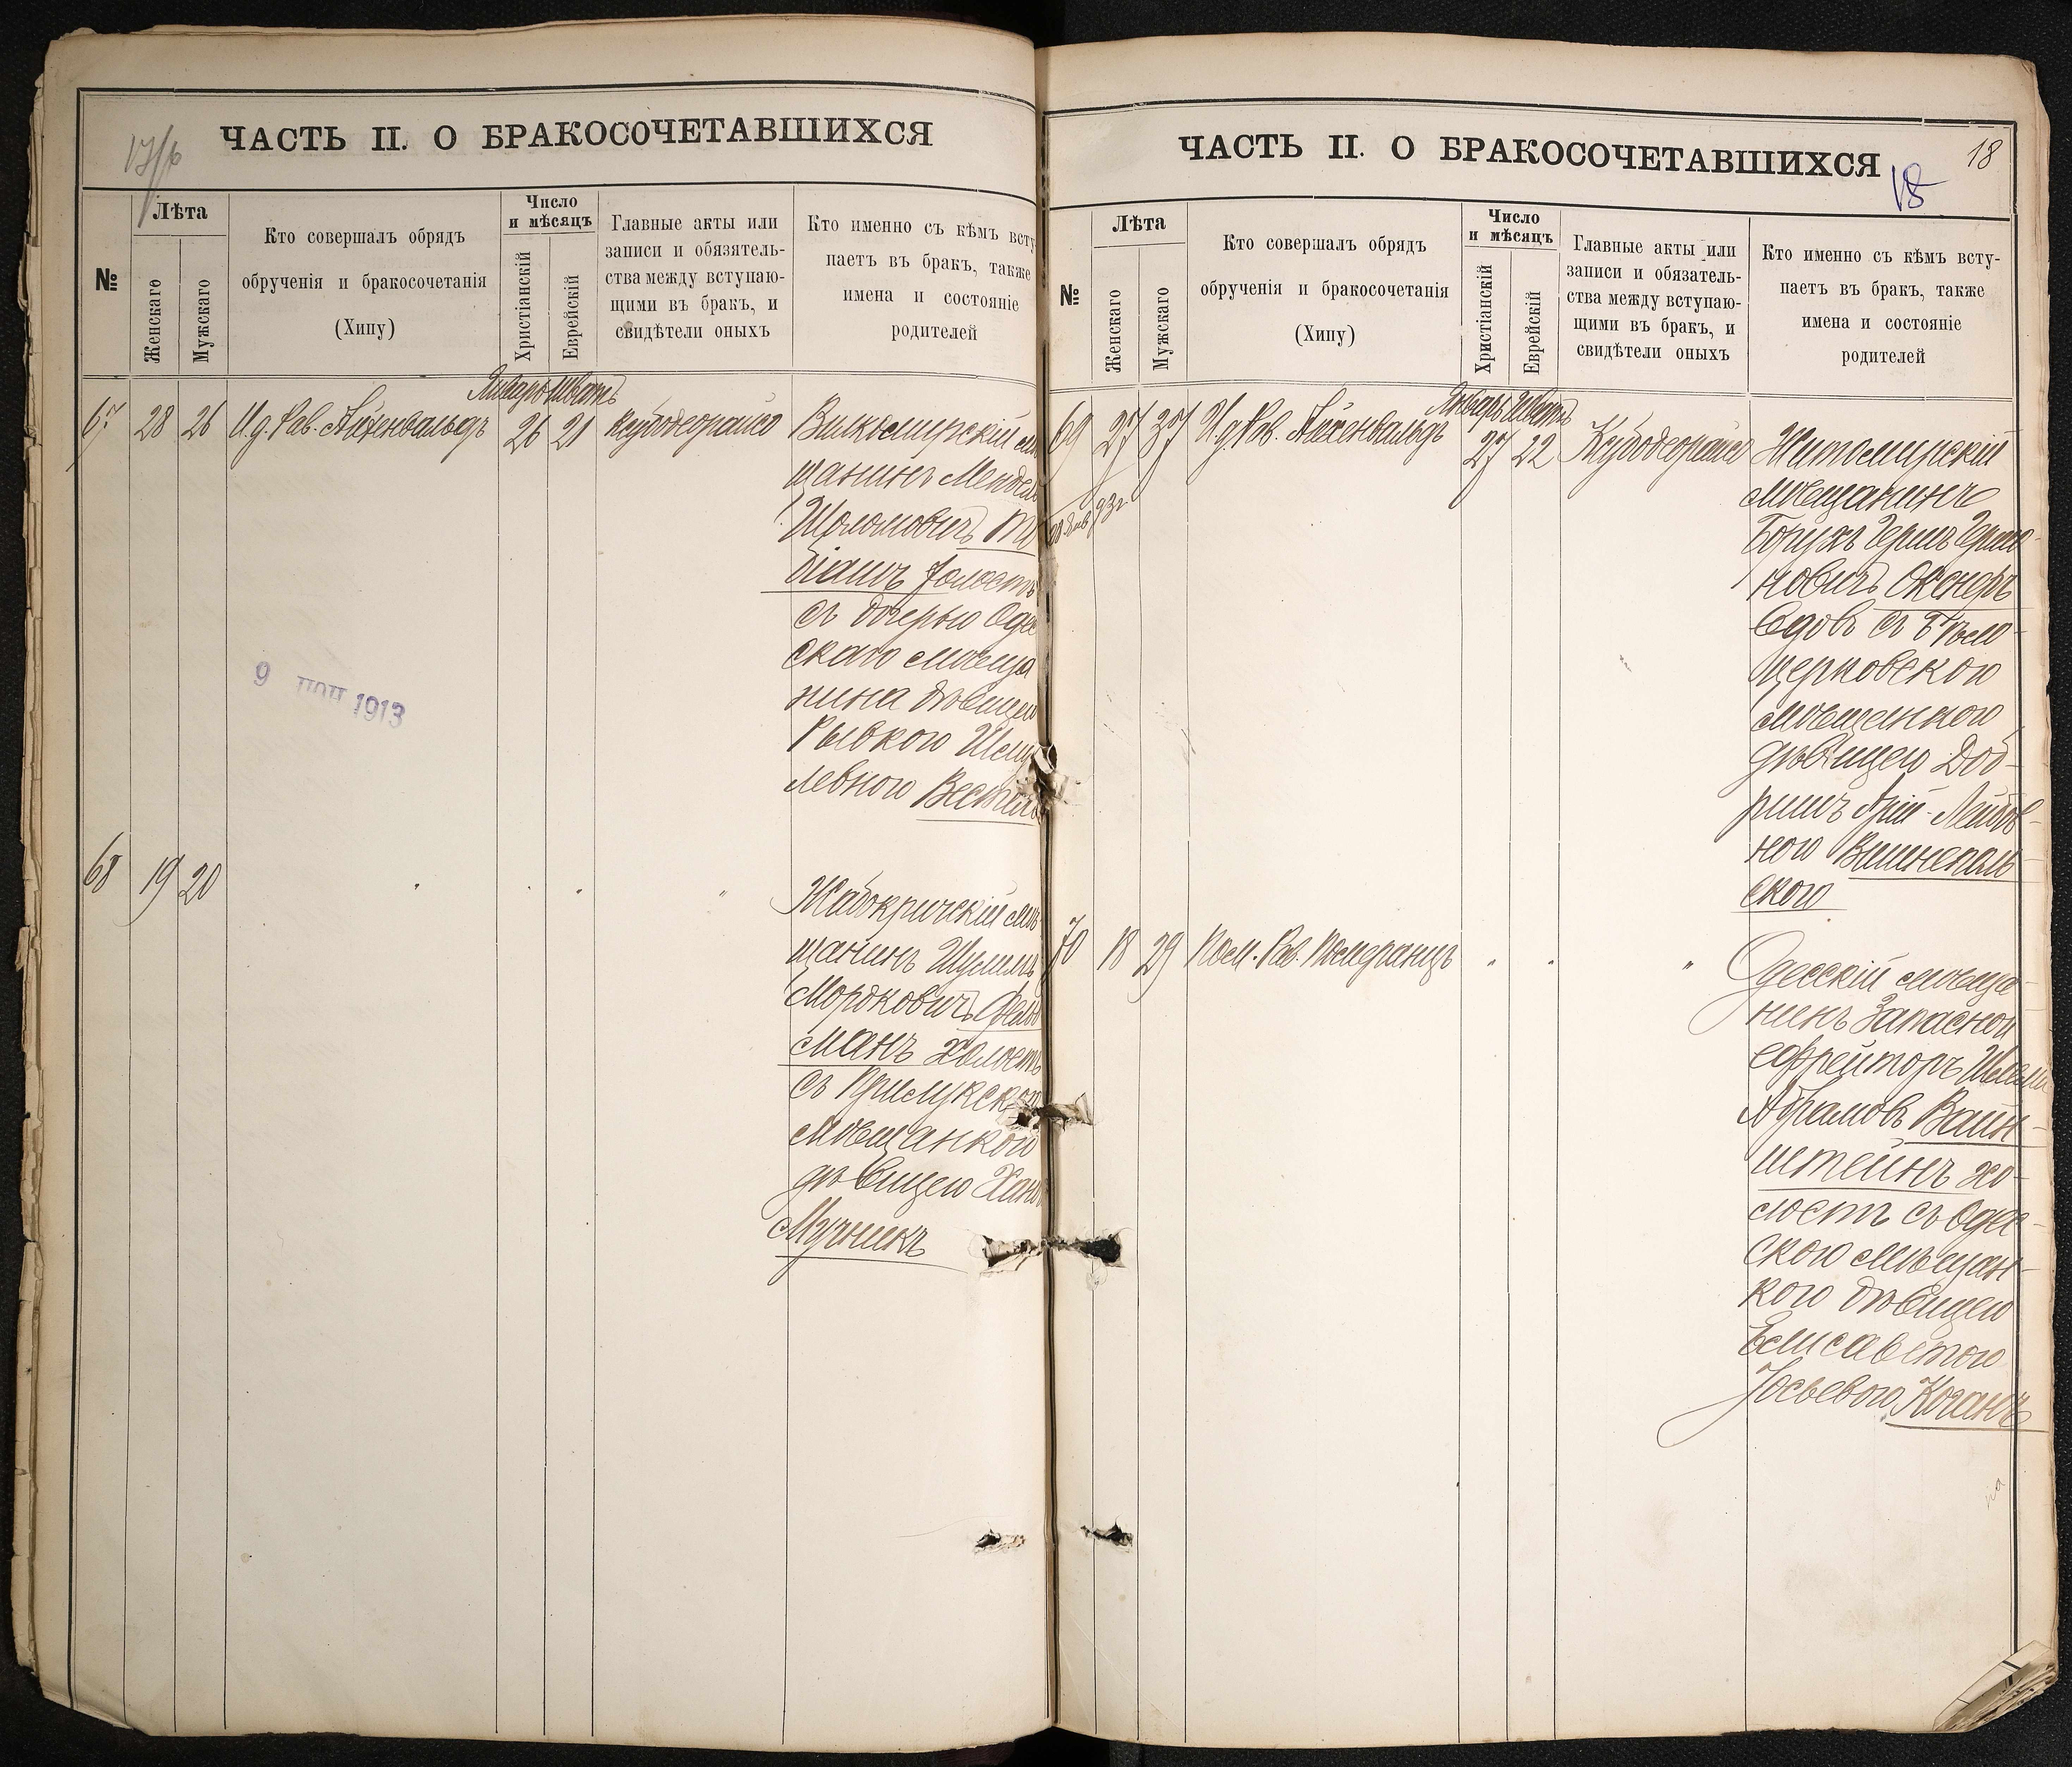 17/6
ЧАСТЬ II. О БРАКОСОЧЕТАВШИХСЯ
№
Лѣта
Женскаго
Мужскаго
Кто совершалъ обрядъ
обрученія и бракосочетанія
(Хипу)
Число
и мѣсяцъ
Христіанскій
Еврейскій
Главные акты или
записи и обязятель-
ства между вступаю-
щими въ бракъ, и
свидѣтели оныхъ
Кто именно съ кѣмъ всту
паетъ въ бракъ, также
имена и состояніе
родителей
Январь Шватъ
67 28 26 И.д. Рав. Айхенвальдъ 26 21
щанинъ Мендель
Шоломовичъ
холостъ
съ дочерью Оде
скаго мѣща
нина дѣвицею
Рывкою
левною
9 1913
68 19 20 " " " "
Жабокричскій мѣ
щанинъ Шулимъ
Мордковичъ Фельд
манъ холостъ
съ Прилукскою
мѣщанкою
дѣвицею Ханою
Мучникъ
ЧАСТЬ II. О БРАКОСОЧЕТАВШИХСЯ
18
18
№
Лѣта
Женскаго
Мужскаго
Кто совершалъ обрядъ
обрученія и бракосочетанія
(Хипу)
Число
и мѣсяцъ
Христіанскій
Еврейскій
Главные акты или
записи и обязатель-
ства между вступаю-
щими въ бракъ, и
свидѣтели оныхъ
Кто именно съ кѣмъ всту-
паетъ въ бракъ, также
имена и состояніе
родителей
Январь Шватъ
69 27 37 И.д. Рав. Айхенвальдъ 27 22 Житомирскій
мѣщанинъ
Борухъ Гершъ Герш
новичъ
вдовъ съ Бѣло-
церковскою
мѣщанкою
дѣвицею Доб-
ришъ Лейбов-
ною Вишнеполь
скою
70 18 29 Пом. Рав. Помѣранцъ " " "
Одесскій мѣща-
нинъ Запасной
ефрейторъ
Абрамов Вайн-
штейнъ хо-
лостъ съ Одес-
скою мѣщан-
кою дѣвицею
Елисаветою
Іосьевою Коганъ